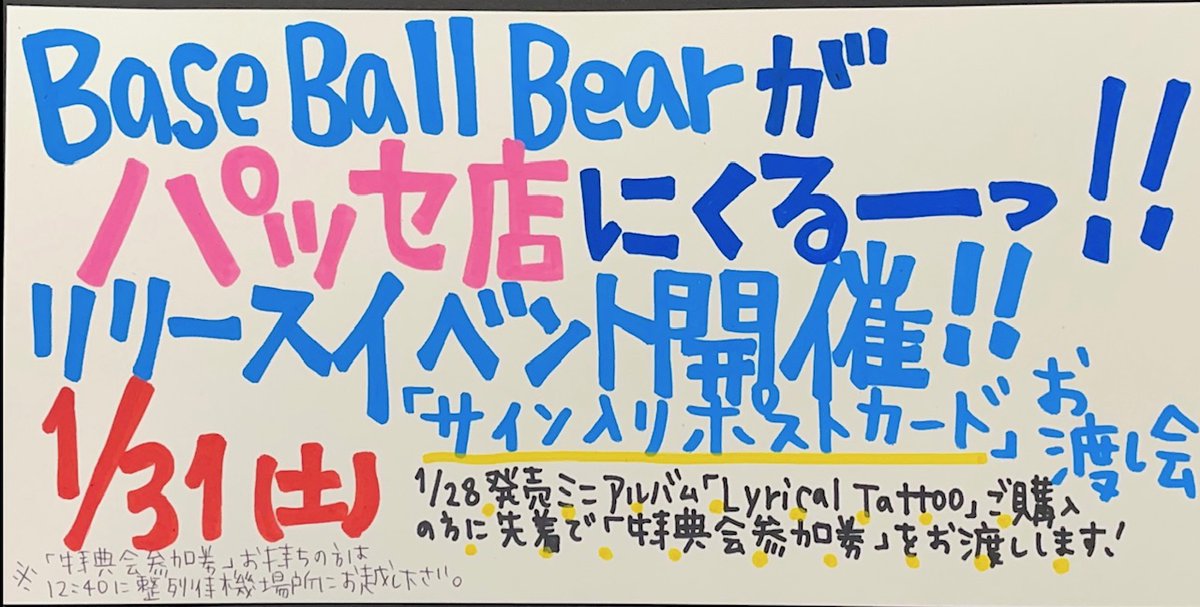 Base Ball Bearが
パッセ店にくるーっ!!
リリースイベント開催!!
「サイン入りポストカード」お渡し会
1/31(土)
1/28発売ミニアルバム「Lyrical Tattoo」ご購入
の方に先着で「特典会参加券」をお渡しします!
※「特典会参加券」お持ちの方は
12:40に整列待機場所にお越しください。